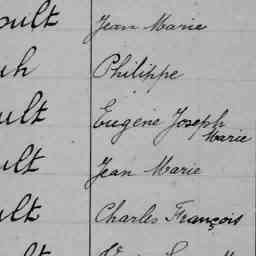 oult Jean Marie
uh Philippe
ult Eugène Joseph
Marie
ult Jean Marie
ult Charles François